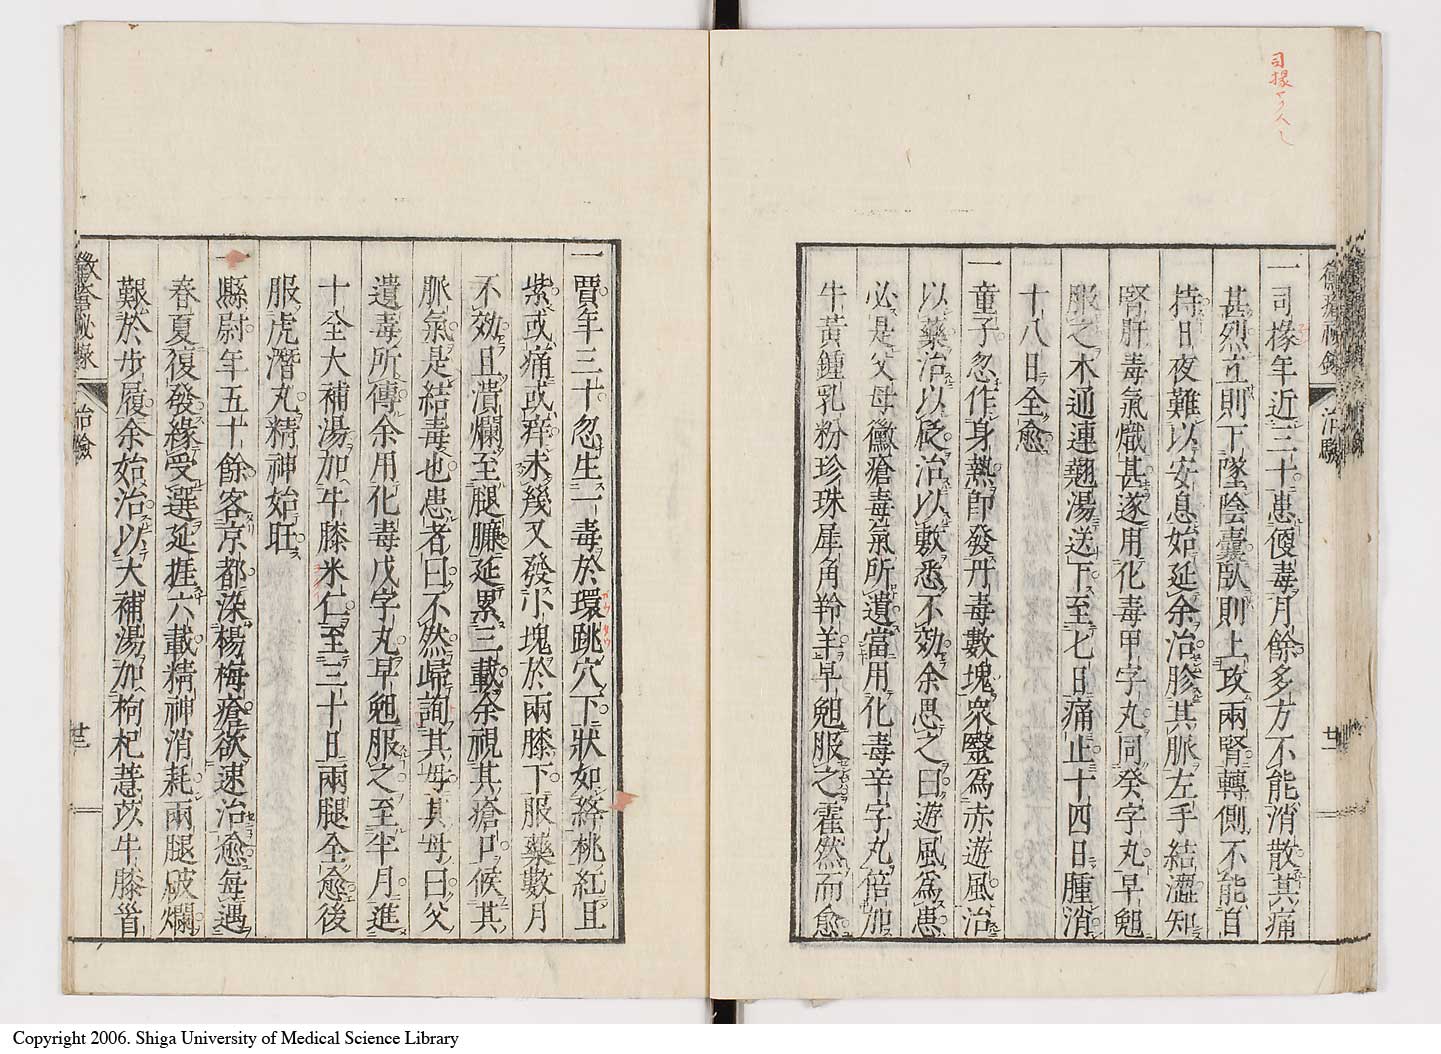 司掾ヤク人ㇾ
黴瘡秘録 治驗 廿二
一司掾年近三十患便毒月餘多方不能消散其痛
甚烈立則下墜陰囊臥則上攻兩腎轉側不能自
持日夜難以安息始延余治胗其脈左手結澀知
腎肝毒氣熾甚遂用化毒甲字丸同癸字丸早𣇄
服之木通連翹湯送下至七日痛止十四日腫消
十八日全愈
一童子忽作身熱卽發丹毒數塊衆醫爲赤遊風治
以藥治以砭治以敷悉不効余思之曰遊風爲患
必是父母黴瘡毒氣所遺當用化毒辛字丸倍加
牛黃鍾乳粉珍珠犀角羚羊早𣇄服之霍然而愈
一賈年三十忽生一毒於環跳穴下狀如絳桃紅且
紫或痛或痒未幾又發小塊於兩膝下服藥數月
不効且潰爛至腿臁延累三載余視其瘡口候其
脈氣是結毒也患者曰不然歸詢其母其母曰父
遺毒所傳余用化毒戊字丸早𣇄服之至半月進
十全大補湯加牛膝米仁至三十日兩腿全愈後
服虎潛丸精神始旺
一縣尉年五十餘客京都染楊梅瘡欲速治愈每遇
春夏復發緣受選延捱六載精神消耗兩腿破爛
艱於步履余始治以大補湯加枸杞薏苡牛膝首
黴瘡秘錄 治驗 廿三
Copyright 2006. Shiga University of Medical Science Library